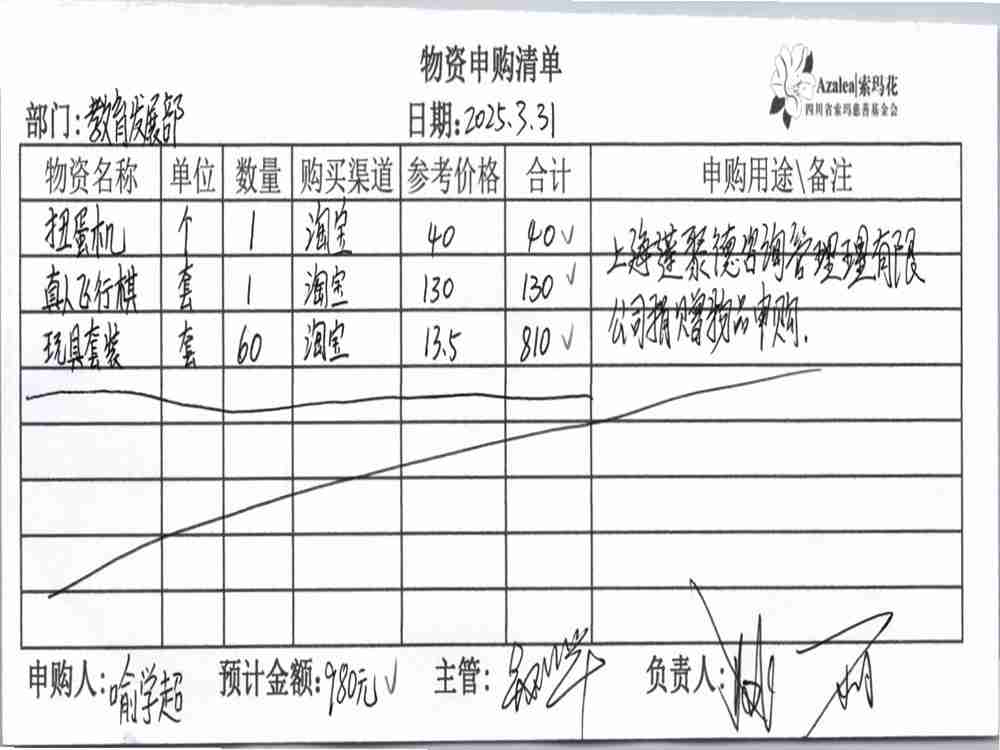 物资申购清单
Azalea|索玛花
四川省索玛慈善基金会
部门:教育发展部 日期:2025.3.31
物资名称 单位 数量 购买渠道 参考价格 合计 申购用途\备注
扭蛋机 个 1 淘宝 40 40✓
真人飞行棋 套 1 淘宝 130 130✓
玩具套装 套 60 淘宝 13.5 810✓
上海蓬聚德咨询管理理有限
公司捐赠物品申购.
申购人:喻学超 预计金额:980元✓ 主管: 负责人: